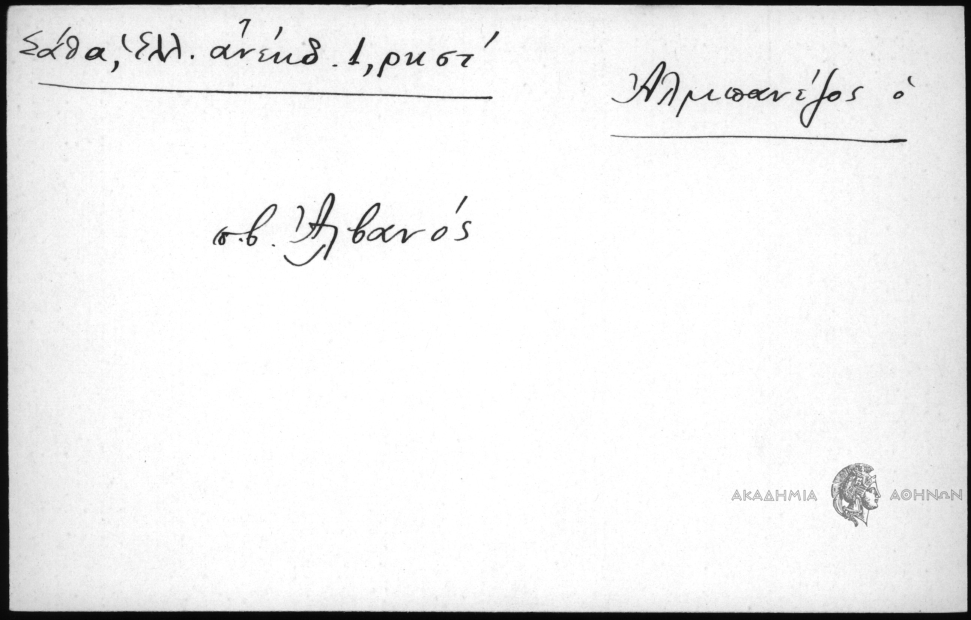 Σάθα, Ἑλλ. ἀνέκδ. 1, ρκστ´
Ἀλμπανέζος ὁ
π.β. Ἀλβανός
ΑΚΑΔΗΜΙΑ ΑΘΗΝΩΝ